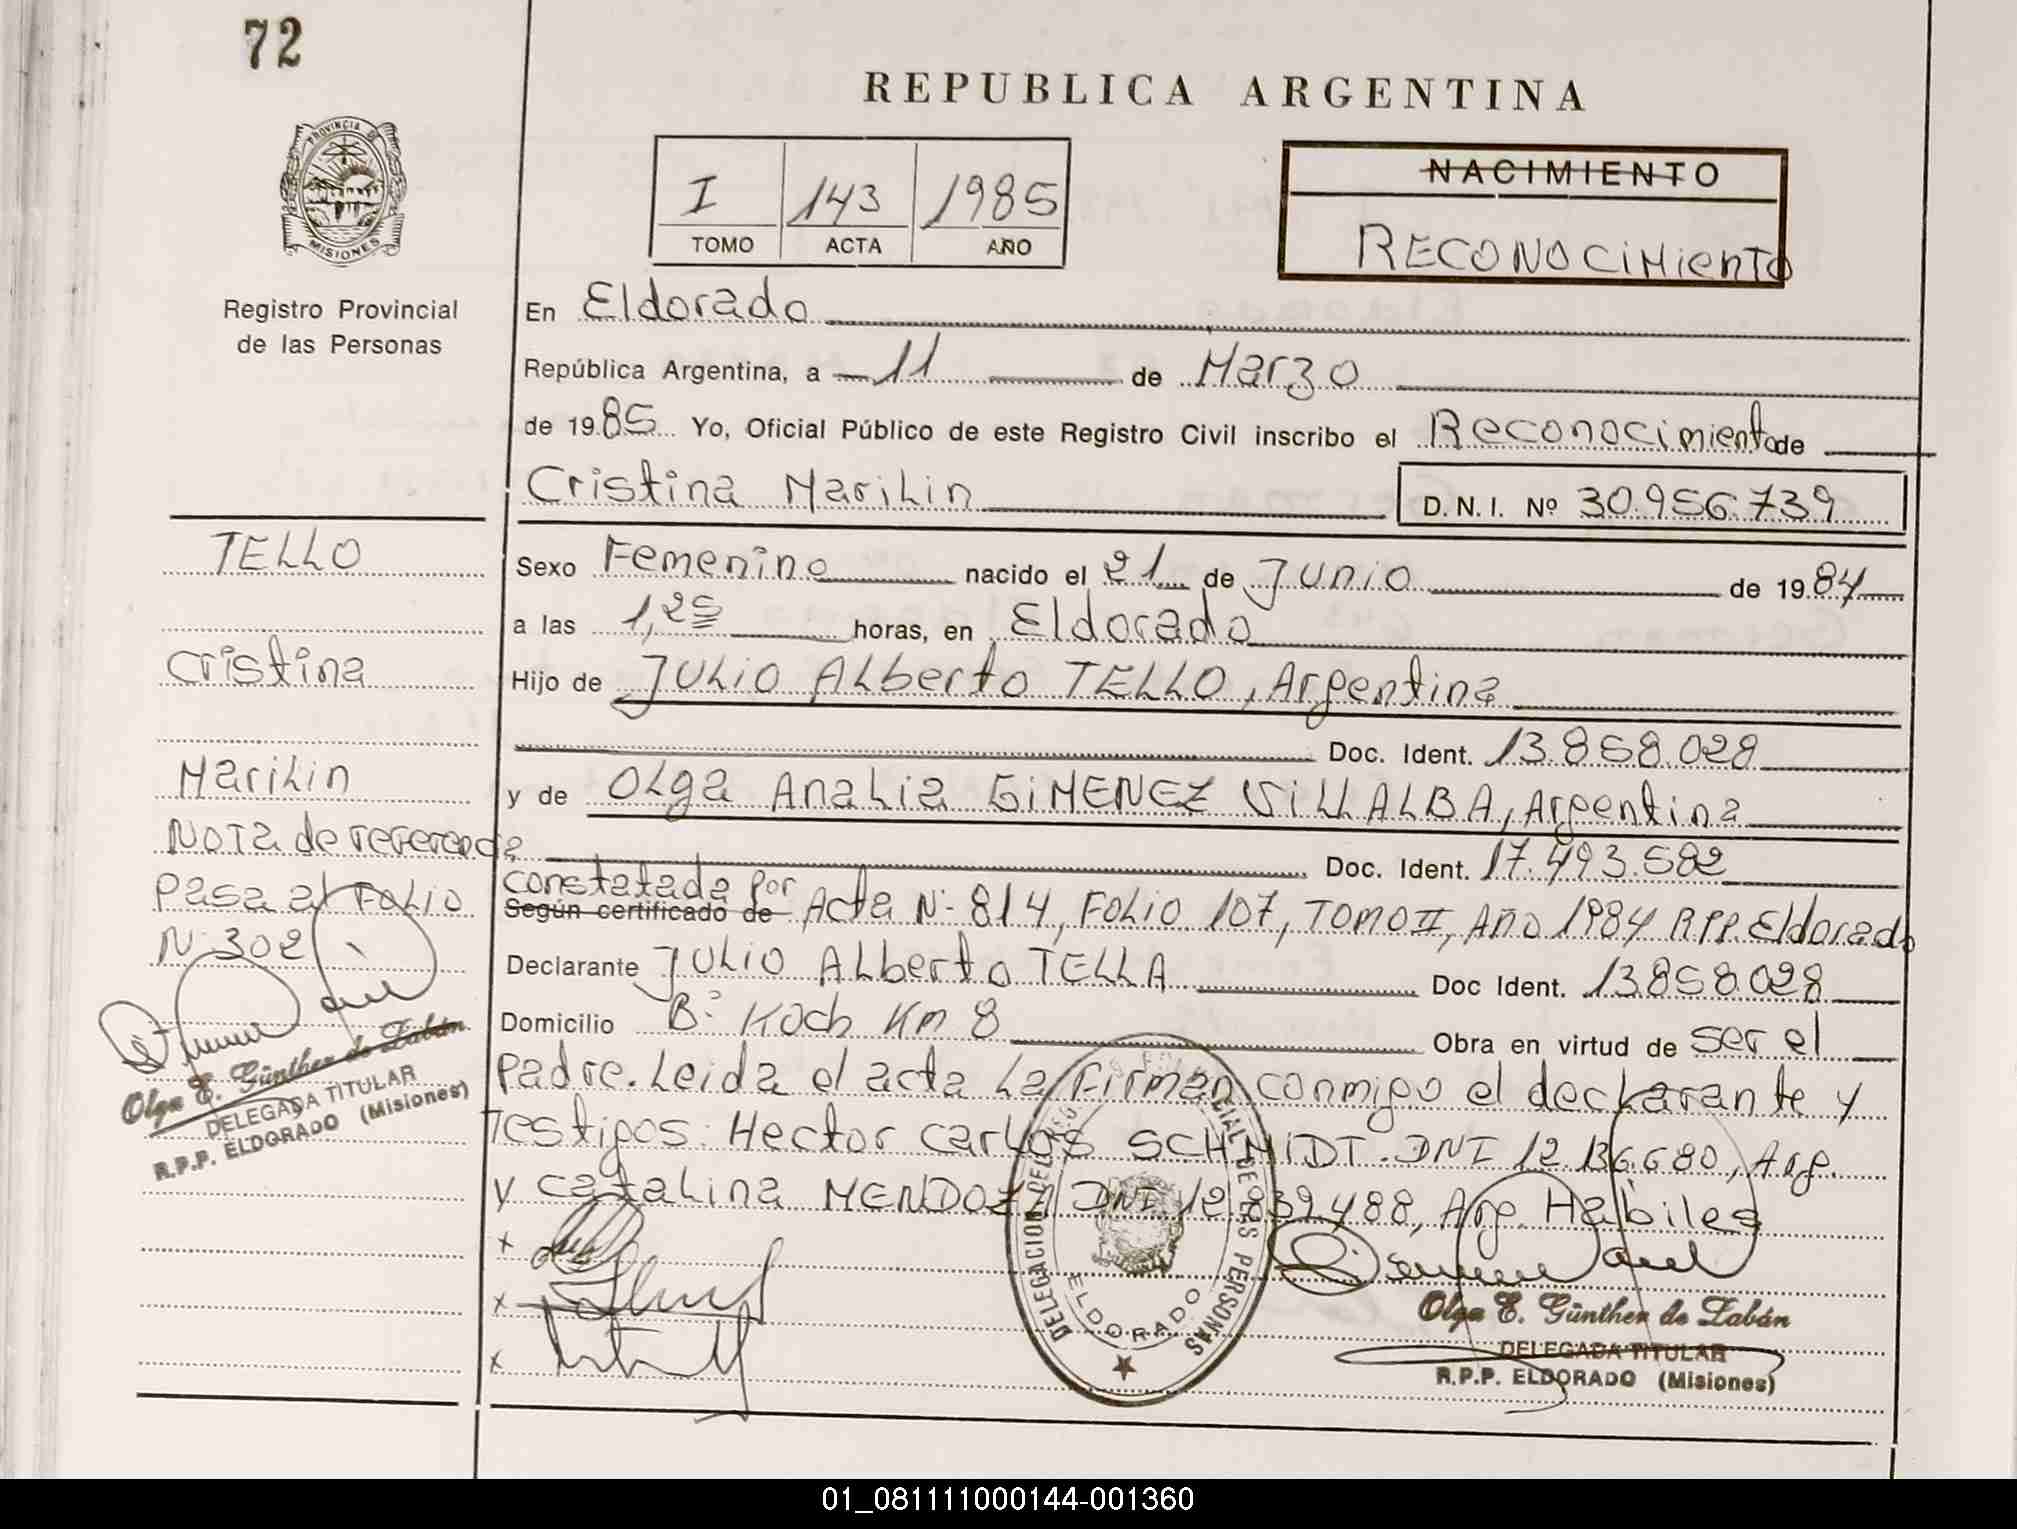 72
REPUBLICA ARGENTINA
PROVINCIA DE MISIONES
I 143 1985
TOMO ACTA AÑO
NACIMIENTO
RECONOCIMIENTO
Registro Provincial
de las Personas
En Eldorado
República Argentina, a 11 de Marzo
de 1985 Yo, Oficial Público de este Registro Civil inscribo el Reconocimiento de
Cristina Marilin D.N.I. Nº 30.956.739
TELLO
Cristina
Marilin
Nota de referencia
Pasa al Folio
Nº 302
Olga E. Günther de Zabán
DELEGADA TITULAR
R.P.P. ELDORADO (Misiones)
Sexo Femenino nacido el 21 de Junio de 1984
a las 1,25 horas, en Eldorado
Hijo de Julio Alberto TELLO, Argentina
Doc. Ident. 13.858.028
y de Olga Analia GIMENEZ VILLALBA, Argentina
Doc. Ident. 17.493.582
constatada por
Según certificado de Acta Nº 814, Folio 107, TOMO II, Año 1984 R.P.P. Eldorado
Declarante Julio Alberto TELLA Doc Ident. 13.858.028
Domicilio Bº Koch Km 8 Obra en virtud de ser el
padre. Leida el acta la Firman conmigo el declarante y
Testigos: Hector Carlos SCHMIDT. DNI 12.136.680, Arg.
y Catalina MENDOZA DNI 12.839.488, Arg. Habiles
x
x
x
DELEGACION DEL REGISTRO PROVINCIAL DE LAS PERSONAS
ELDORADO
Olga E. Günther de Zabán
DELEGADA TITULAR
R.P.P. ELDORADO (Misiones)
01_081111000144-001360